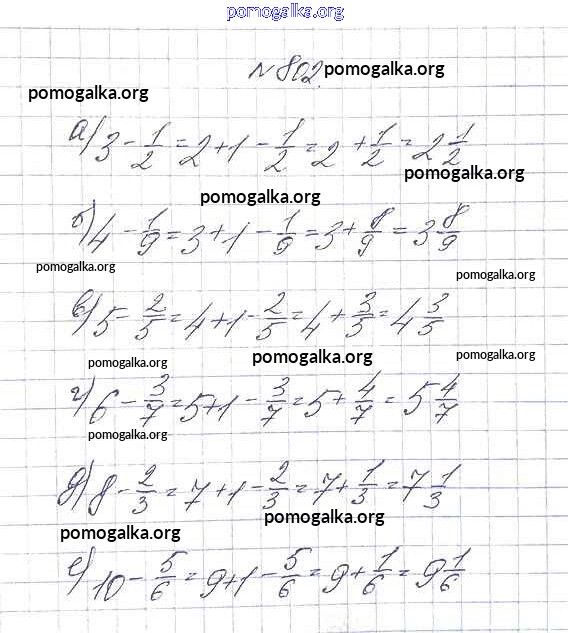 pomogalka.org
№ 802. pomogalka.org
pomogalka.org
а) 3 - 1/2 = 2 + 1 - 1/2 = 2 + 1/2 = 2 1/2
pomogalka.org
pomogalka.org
б) 4 - 1/9 = 3 + 1 - 1/9 = 3 + 8/9 = 3 8/9
pomogalka.org
pomogalka.org
в) 5 - 2/5 = 4 + 1 - 2/5 = 4 + 3/5 = 4 3/5
pomogalka.org pomogalka.org pomogalka.org
г) 6 - 3/7 = 5 + 1 - 3/7 = 5 + 4/7 = 5 4/7
pomogalka.org
д) 8 - 2/3 = 7 + 1 - 2/3 = 7 + 1/3 = 7 1/3
pomogalka.org
pomogalka.org
е) 10 - 5/6 = 9 + 1 - 5/6 = 9 + 1/6 = 9 1/6